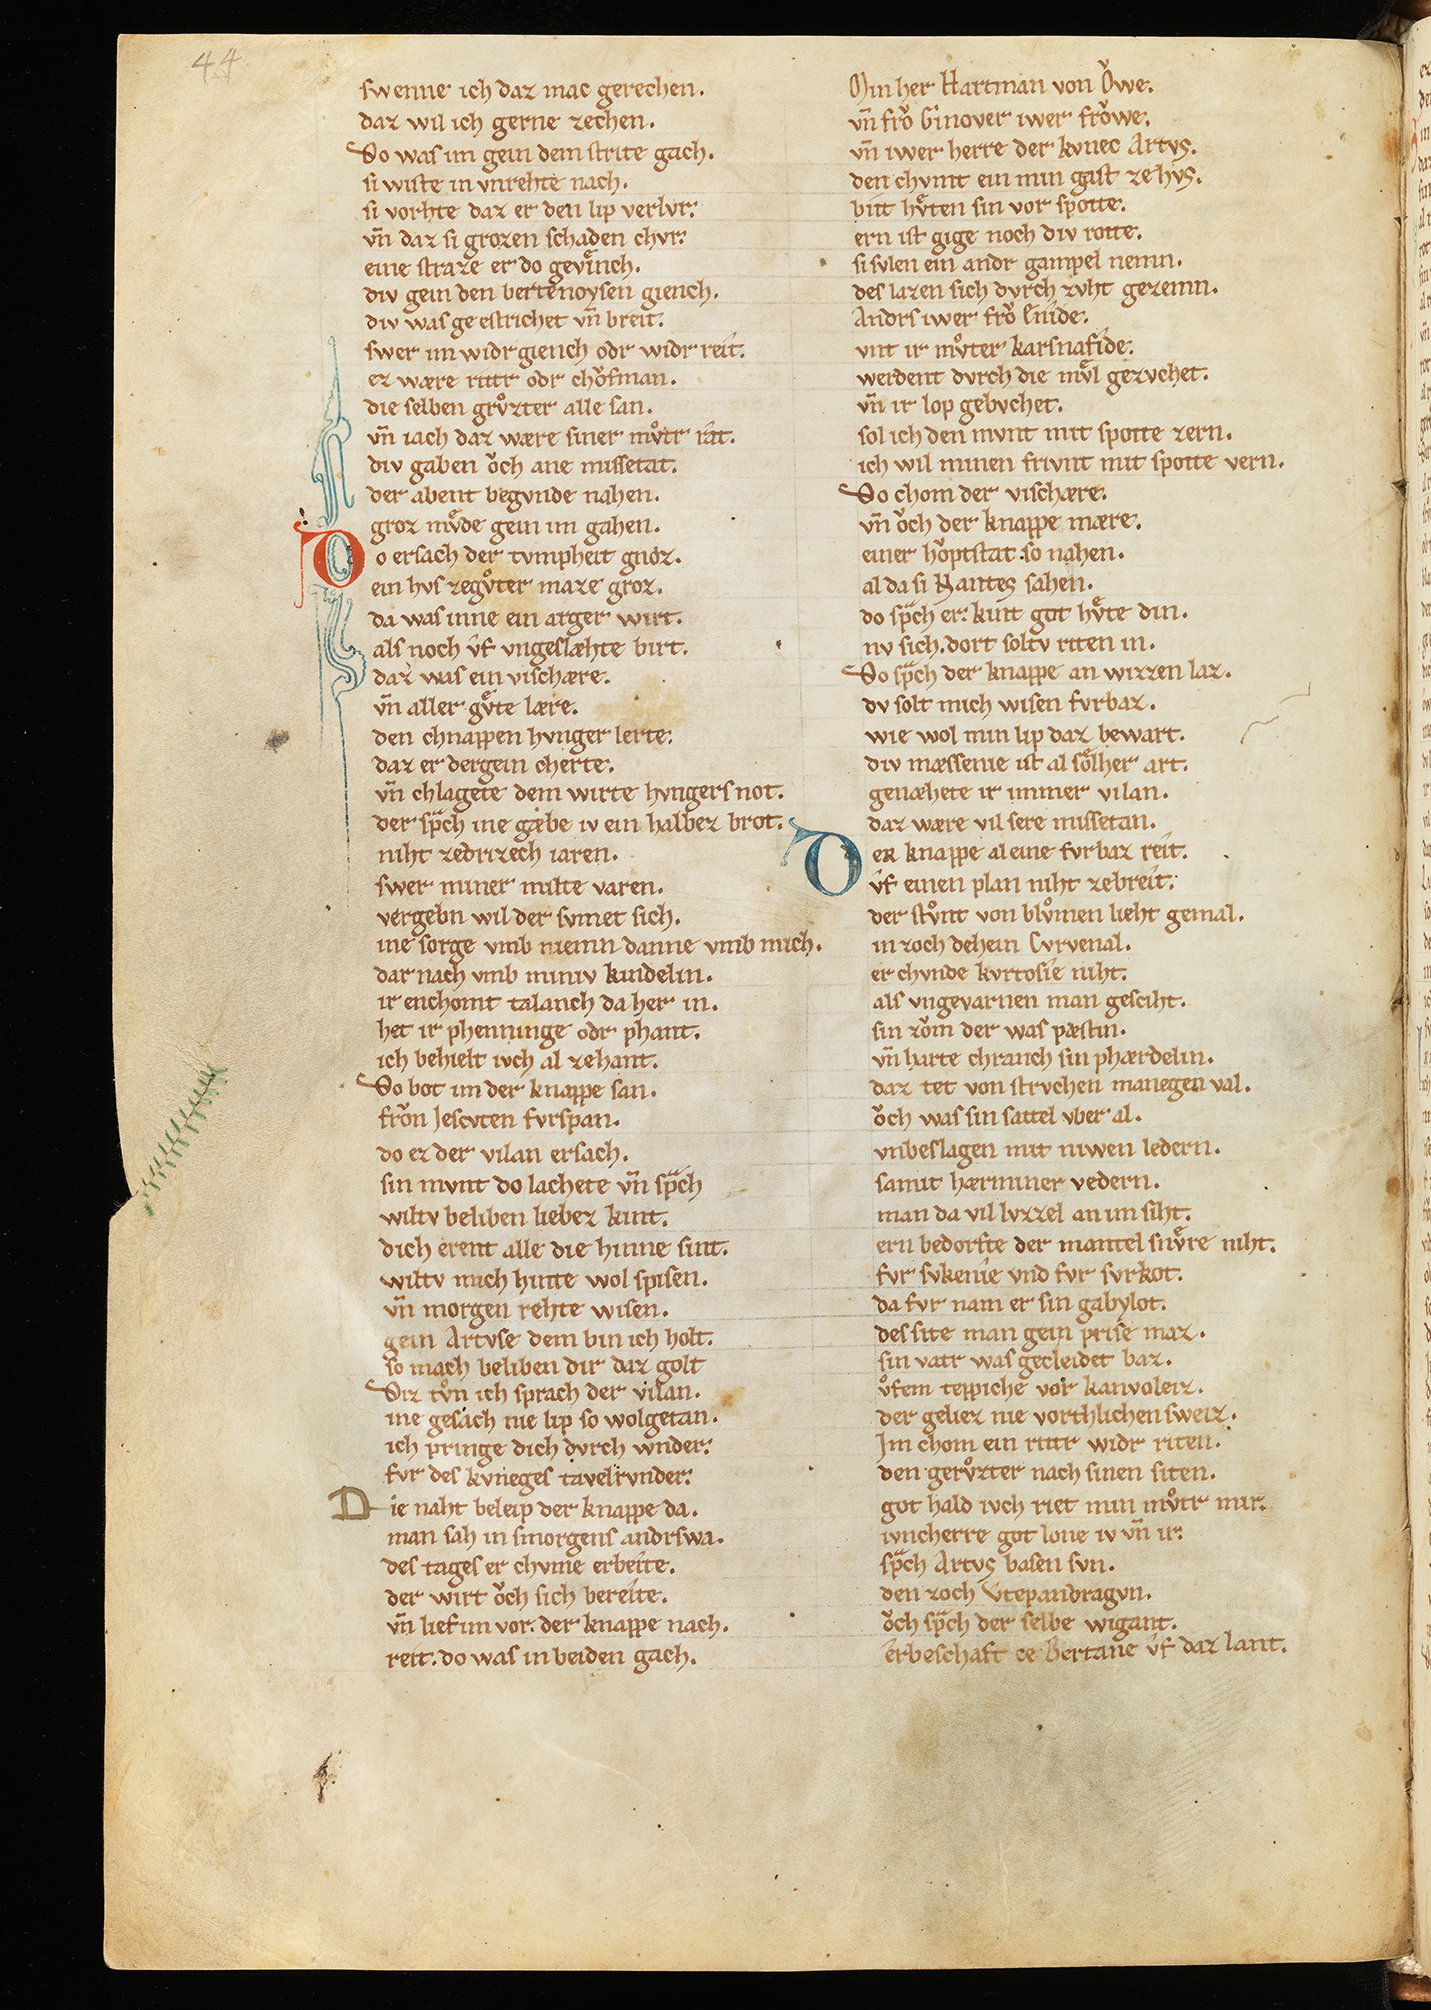 44
swenne ich daz mac gerechen.
daz wil ich gerne zechen.
Do was im gein dem strite gach.
si wiste in vnrehte nach.
si vorhte daz er den lip verlvr.
vn̄ daz si grozen schaden chvr.
eine straze er do geviench.
div gein den bertenoysen giench.
div was geestrichet vn̄ breit.
swer im widr giench odr widr reit.
ez wære rittr odr chǒfman.
die selben grůzter alle san.
vn̄ iach daz wære siner můtr rat.
div gaben ǒch ane missetat.
der abent begvnde nahen.
groz mvͤde gein im gahen.
Do ersach der tvmpheit gnoz.
ein hvs zegůter maze groz.
da was inne ein arger wirt.
als noch vf vngeslæhte birt.
daz was ein vischære.
vn̄ aller gvͤte lære.
den chnappen hvnger lerte.
daz er dergein cherte.
vn̄ chlagete dem wirte hvngers not.
der sp̃ch ine gæbe iv ein halbez brot.
niht zedrizech iaren.
swer miner milte varen.
vergebn wil der svmet sich.
ine sorge vmb niemn danne vmb mich.
dar nach vmb miniv kindelin.
ir enchomt talanch da her in.
het ir phenninge odr phant.
ich behielt ivch al zehant.
Do bot im der knappe san.
frǒn Jescvten fvrspan.
do ez der vilan ersach.
sin mvnt do lachete vn̄ sp̃ch
wiltv beliben liebez kint.
dich erent alle die hinne sint.
wiltv mich hinte wol spisen.
vn̄ morgen rehte wisen.
gein Artvse dem bin ich holt.
so mach beliben dir daz golt
Diz tůn ich sprach der vilan.
ine gesach nie lip so wolgetan.
ich pringe dich dvrch wnder.
fvr des kvneges tavelrvnder.
Die naht beleip der knappe da.
man sah in smorgens andrswa.
des tages er chvme erbeite.
der wirt ǒch sich bereite.
vn̄ lief im vor. der knappe nach.
reit. do was in beiden gach.
Min her Hartman von Ǒwe.
vn̄ frǒ Ginover iwer frǒwe.
vn̄ iwer herre der kvnec Artvs.
den chvmt ein min gast ze hvs.
bitt hvͤten sin vor spotte.
ern ist gige noch div rotte.
si svlen ein andr gampel nemn.
des lazen sich dvrch zvht gezemn.
Andrs iwer frǒ Enide.
vnt ir můter karsnafide.
werdent dvrch die mvͤl gezvchet.
vn̄ ir lop gebvchet.
sol ich den mvnt mit spotte zern.
ich wil minen frivnt mit spotte vern.
Do chom der vischære.
vn̄ ǒch der knappe mære.
einer hǒptstat so nahen.
al da si Nantes sahen.
do sp̃ch er: kint got hvͤte din.
nv sich. dort soltv riten in.
Do sp̃ch der knappe an wizzen laz.
dv solt mich wisen fvrbaz.
wie wol min lip daz bewart.
div mæssenie ist al sölher art.
genæhete ir immer vilan.
daz wære vil sere missetan.
Der knappe al eine fvrbaz reit.
vf einen plan niht zebreit.
der stůnt von blůmen lieht gemal.
in zoch dehein Cvrvenal.
er chvnde kvrtosie niht.
als vngevarnen man gesciht.
sin zǒm der was pæstin.
vn̄ harte chranch sin phærdelin.
daz tet von strvchen manegen val.
ǒch was sin sattel vber al.
vnbeslagen mit niwen ledern.
samit hærminer vedern.
man da vil lvzzel an im siht.
ern bedorfte der mantel snvͤre niht.
fvr svkenie vnd fvr svrkot.
da fvr nam er sin gabylot.
des site man gein prise maz.
sin vatr was gecleidet baz.
ůfem teppiche vor kanvoleiz.
der geliez nie vorthlichen sweiz.
Im chom ein rittr widr riten.
den gerůzter nach sinen siten.
got hald ivch riet min můtr mir.
ivncherre got lone iv vn̄ ir.
sp̃ch Artvs basen svn.
den zoch Vtepandragvn.
ǒch sp̃ch der selbe wigant.
erbeschaft ce Bertane vf daz lant.